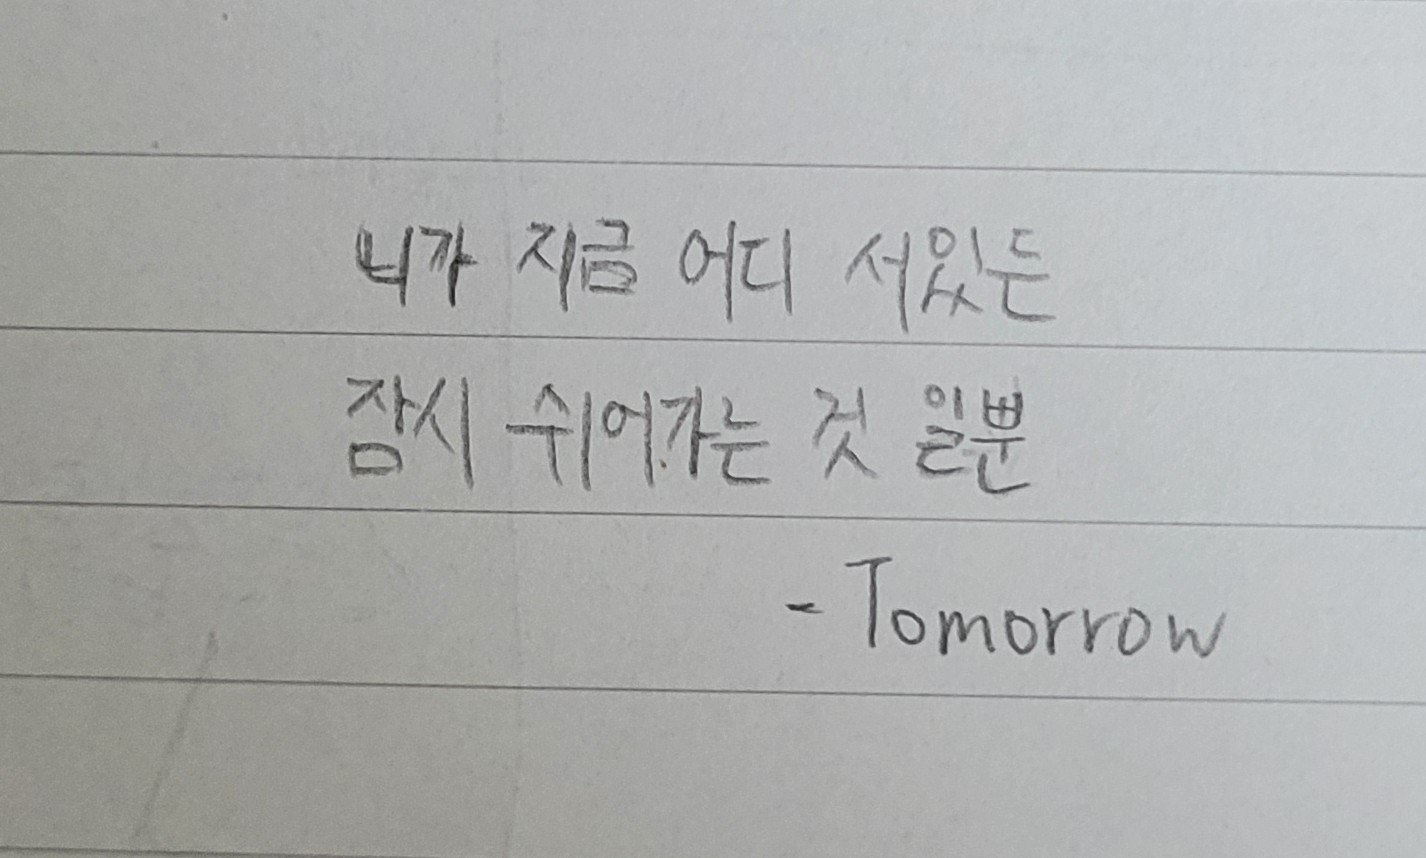 니가 지금 어디 서있든
잠시 쉬어가는 것 일뿐
- Tomorrow